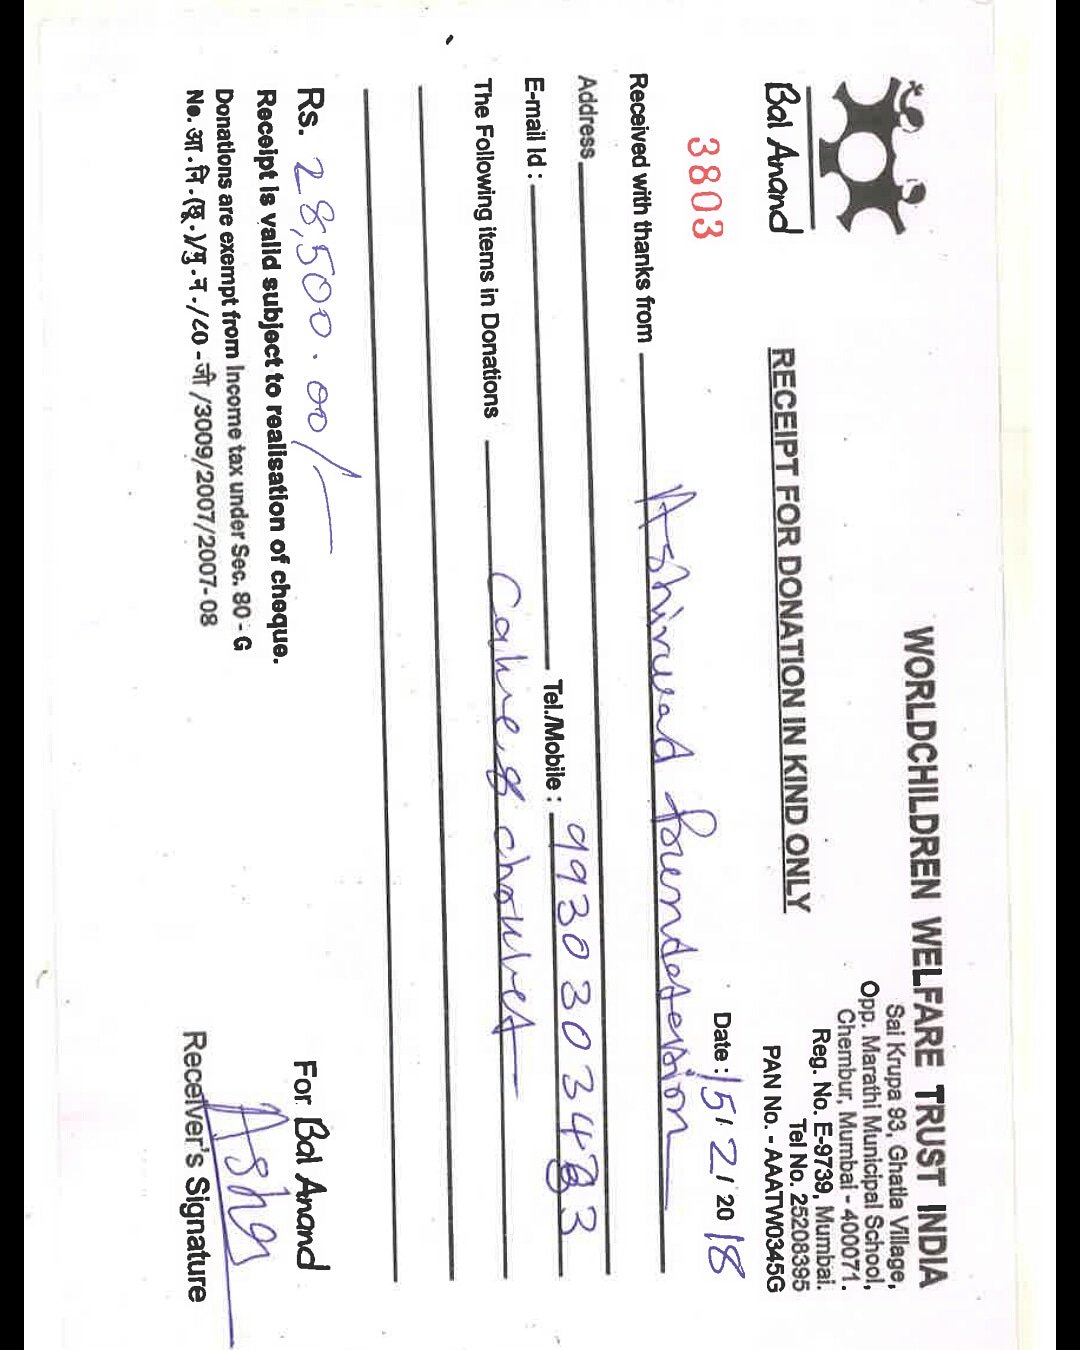 WORLDCHILDREN WELFARE TRUST INDIA
Sai Krupa 93, Ghatla Village,
Opp. Marathi Municipal School,
Chembur, Mumbai - 400071.
Reg. No. E-9739, Mumbai.
Tel No. 25208395
PAN No. - AAATW0345G
Bal Anand
RECEIPT FOR DONATION IN KIND ONLY
3803
Date : 15/2/2018
Received with thanks from Ashirwad foundation
Address
E-mail Id : Tel./Mobile : 99303034
The Following items in Donations Cake &
Rs. 28,500.00/-
Receipt is valid subject to realisation of cheque.
Donations are exempt from Income tax under Sec. 80 - G
No. आ.नि.(छू.)/मु.न./८०-जी/3009/2007/2007-08
For Bal Anand
Asha
Receiver's Signature